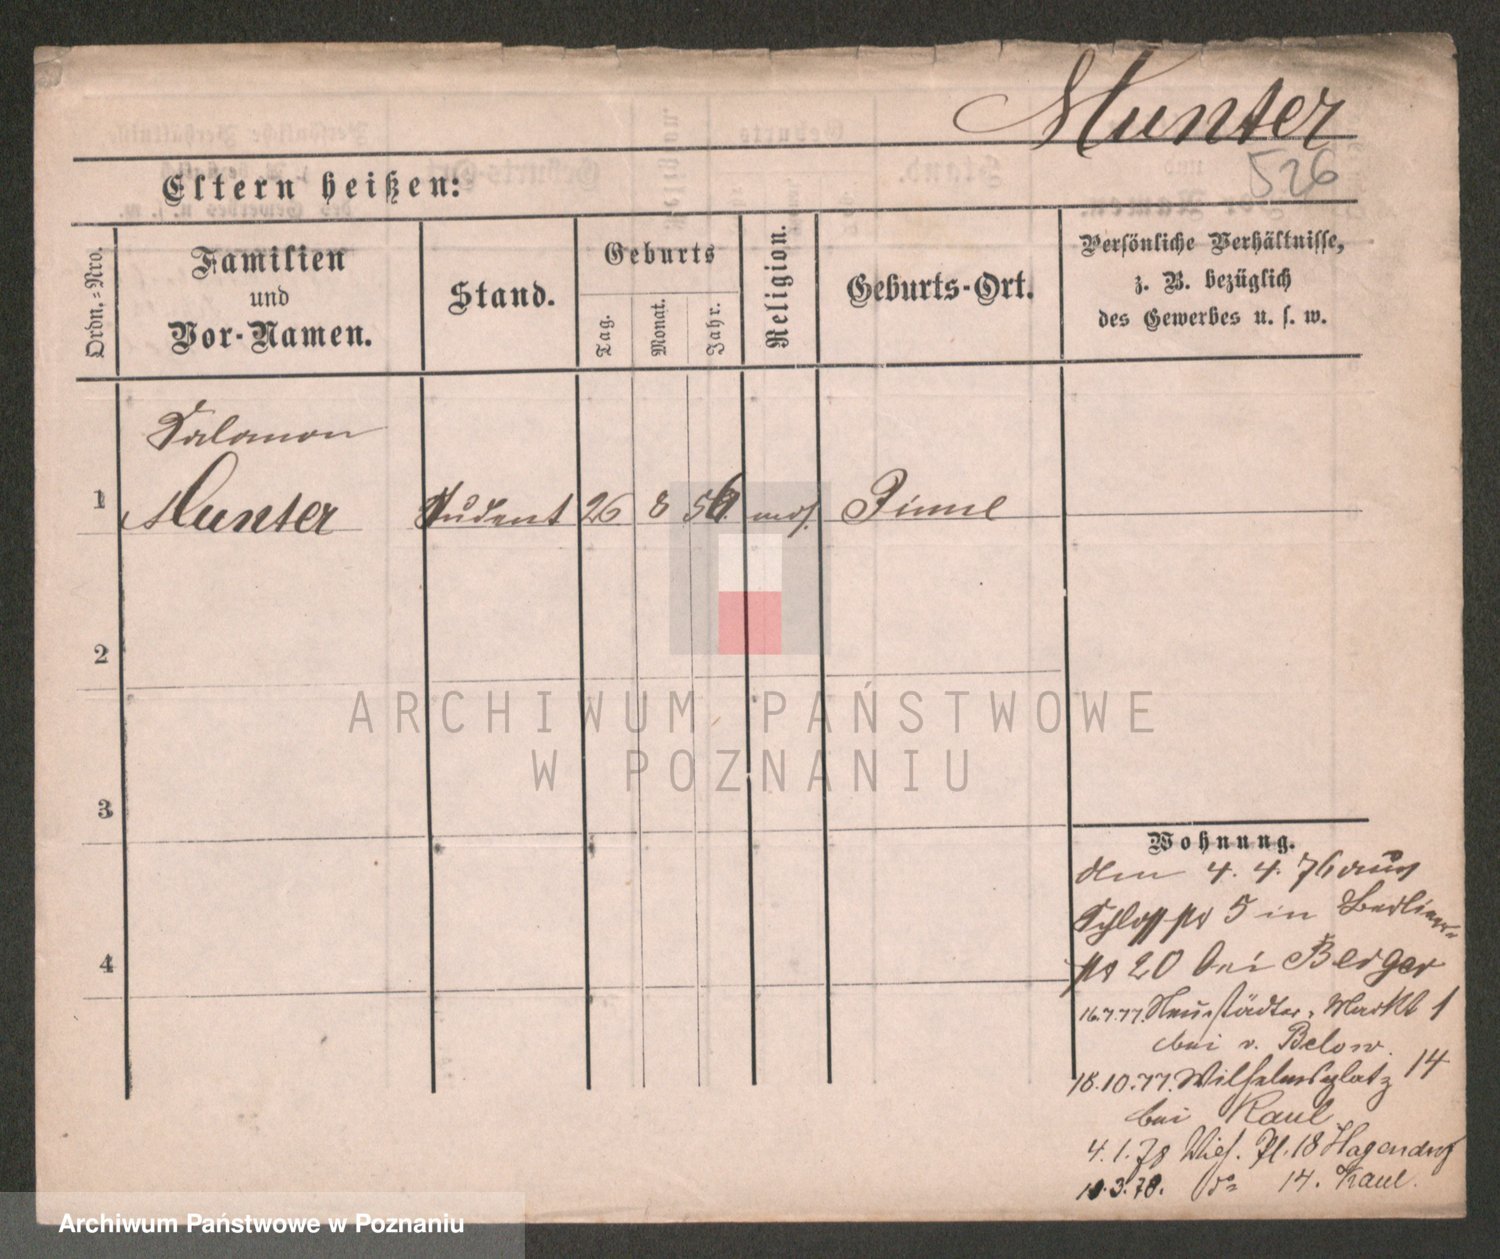 Munter
526
Eltern heißen:
Ordn.-Nro.
Familien
und
Vor-Namen.
Stand.
Geburts
Tag.
Monat.
Jahr.
Religion.
Geburts-Ort.
Persönliche Verhältnisse,
z. B. bezüglich
des Gewerbes u. s. w.
Salomon
1 Munter Student 26 8 56 mos. Pinne
2
3
4
Wohnung.
den 4. 4. 76 aus
Schloßstr 5 in Berliner-
str 20 bei Berger
16.7.77. Neustädter. Markt 1
bei v. Below.
18.10.77. Wilhelmsplatz 14
bei Kaul
4.1.78 Pl. 18
3.78. do 14. Kaul.
ARCHIWUM PAŃSTWOWE
W POZNANIU
Archiwum Państwowe w Poznaniu